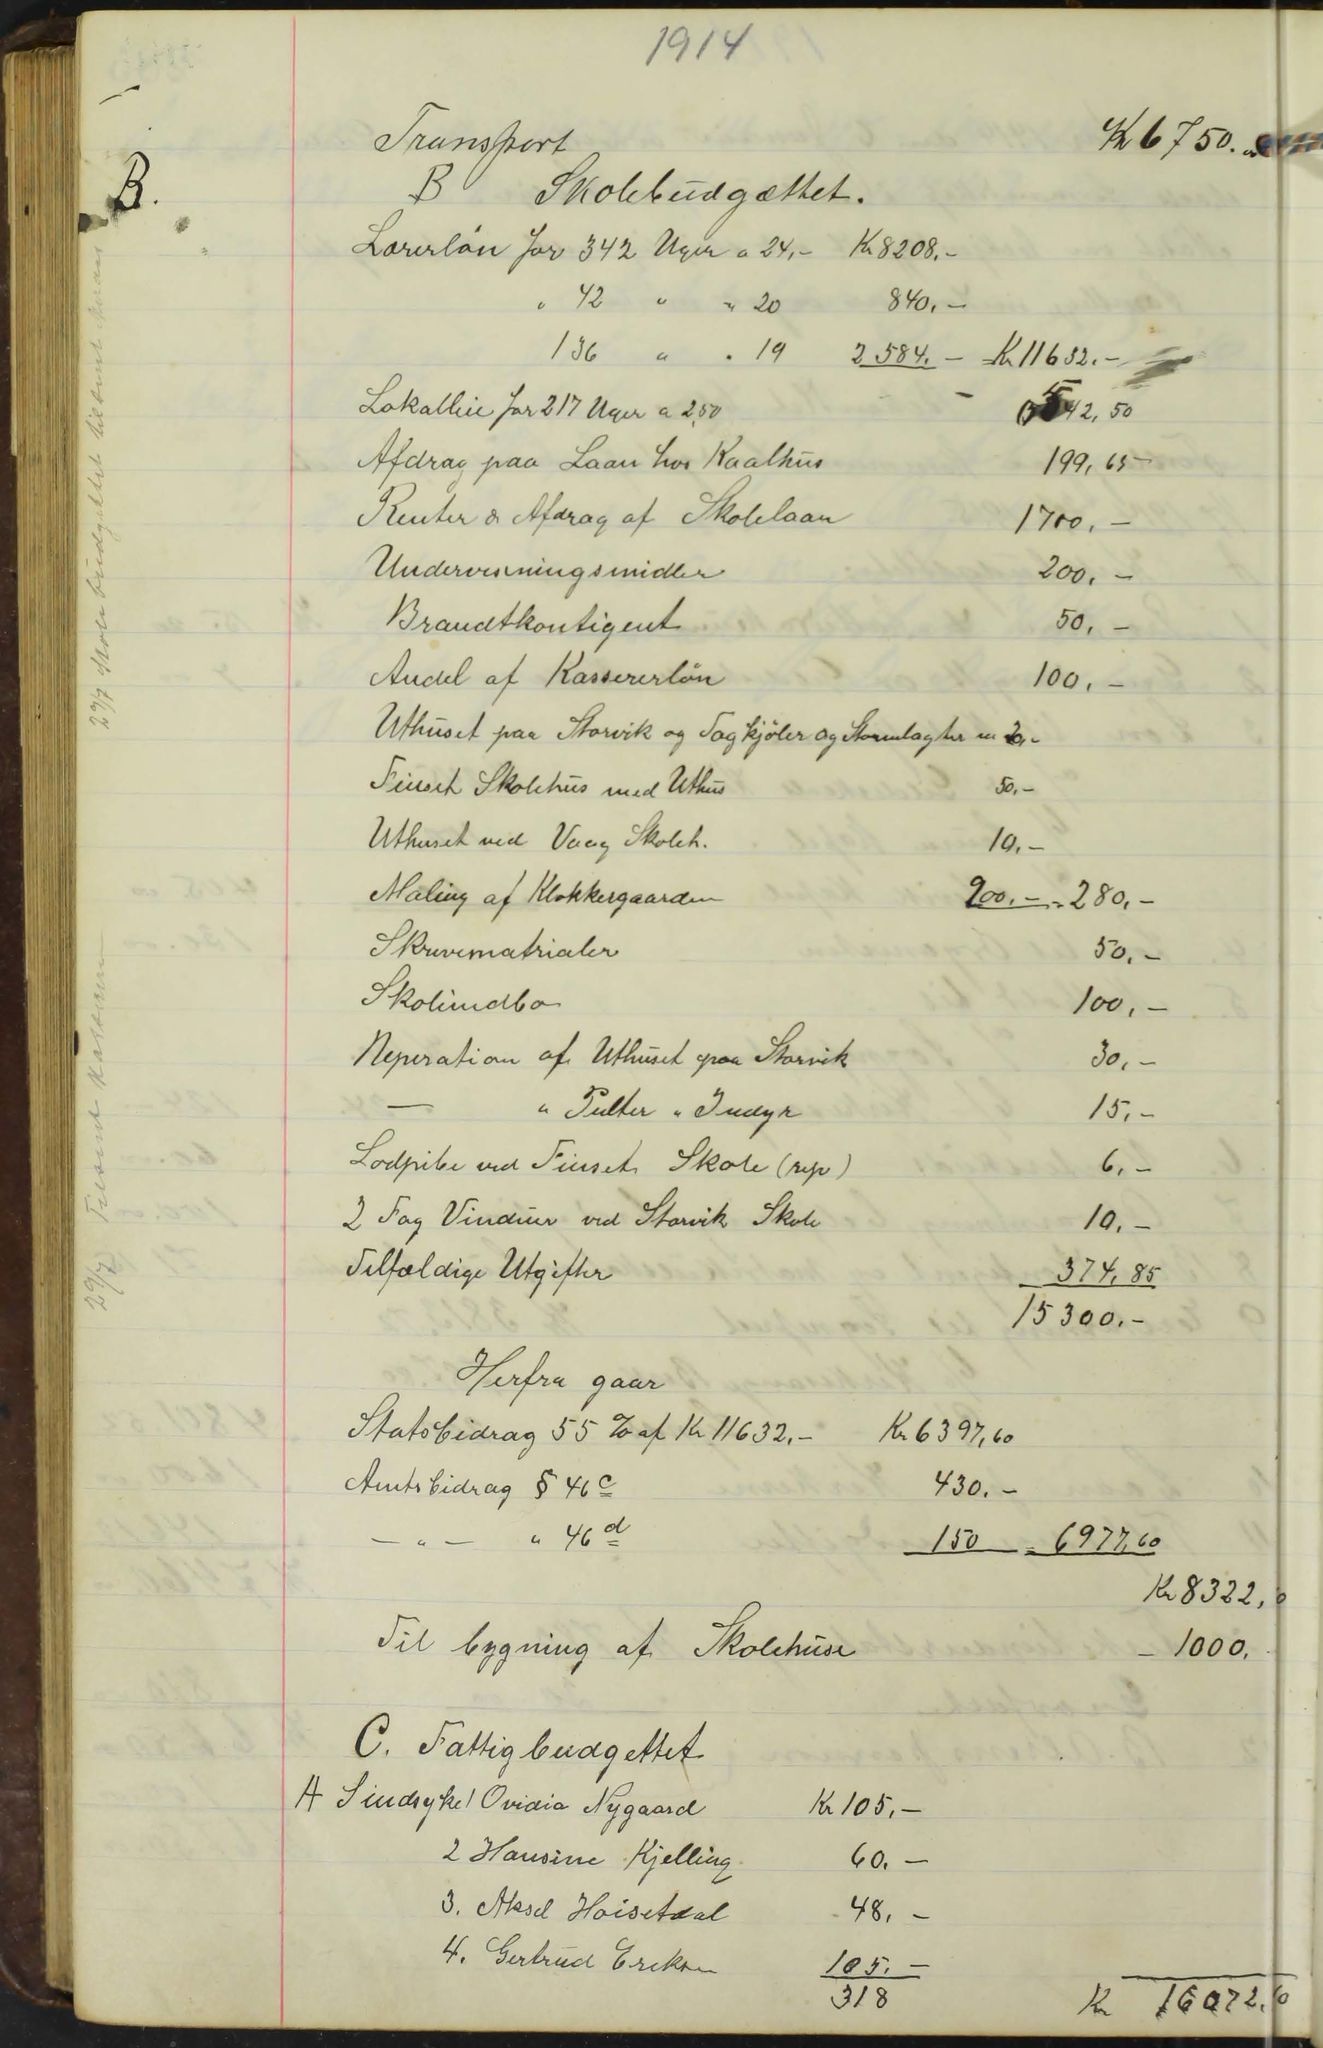 1914
Transport Kr 6750.
B.
B Skolebudgættet.
Lærerløn for 342 Uger a 24,- Kr 8208.-
" 42 " " 20 840.-
136 " " 19 2584.- Kr 11632.-
Lokalleie for 217 Uger a 2,50 542,50
Afdrag paa Laan hos Kaalhus 199,65
Renter & Afdrag af Skolelaan 1700.-
Undervisningsmidler 200.-
Brandtkontigent 50.-
Andel af Kassererløn 100.-
Uthuset paa Storvik og Tagkjöler og Stormlagter m 20,-
Finset Skolehus med Uthus 50.-
Uthuset ved Vaag Skoleh. 10.-
Maling af Klokkergaarden 200.- = 280.-
Skrivematrialer 50.-
Skolindbo 100.-
Reperation af Uthuset paa Storvik 30.-
— " Pulter " Indyr 15.-
Lodpibe ved Finset Skole (rep) 6.-
2 Fag Vinduer ved Storvik Skole 10.-
Tilfældige Utgifter 374,85
15300.-
Herfra gaar
Statsbidrag 55 % af Kr 11632.- Kr 6397,60
Amtsbidrag § 46 c 430.-
— " — " 46 d 150 = 6977,60
Kr 8322,
Til bygning af Skolehuse - 1000.
C. Fattigbudgettet
A Sindsyke 1 Ovidia Nygaard Kr 105.-
2 Hansine Kjelling 60.-
3. Aksel Hoisetdal 48.-
4. Gertrud Eriksen 105.-
318 Kr 16072.
29/7 Skolebudgettet tilsendt
29/7 Tilsendt Kassereren